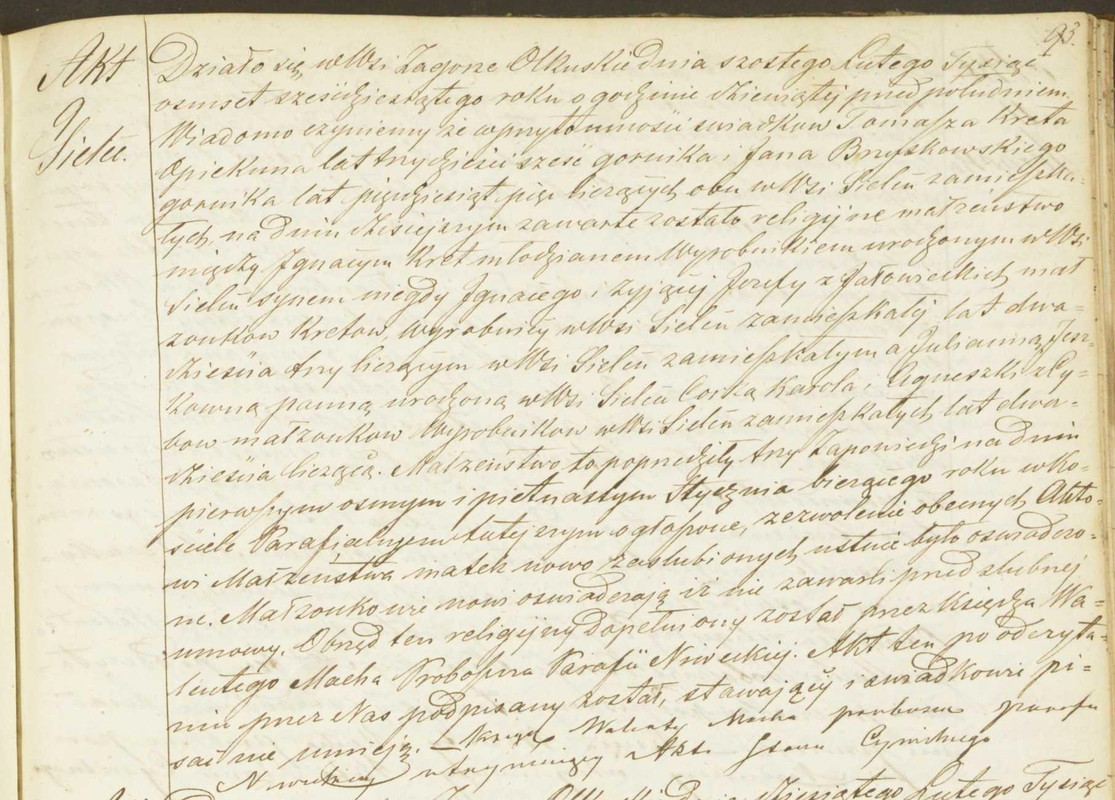 95.
Akt
9
Sielec.
Działo się wWsi Zagorze Olkuskie dnia szostego Lutego Tysiąc
osmset sześćdziesiątego roku o godzinie dziewiątej przed południem
Wiadomo czyniemy że wprzytomności swiadkow Tomasza Kreta
Opiekuna lat trzydzieści sześć gornika i Jana Brzyskowskiego
gornika lat pięćdziesiąt pięć liczących obu wWsi Sielcu zamieszka-
łych, na dniu dzisiejszym zawarte zostało religijne małżenstwo
między Ignacym Kret młodzianem Wyrobnikiem urodzonym wWsi
Sielcu synem niegdy Ignacego i żyjącej Jozefy z Jałowieckich mał
zonkow Kretow, Wyrobnicy wWsi Sielcu zamieszkałej lat dwa-
dzieścia trzy liczącym wWsi Sielcu zamieszkałym a Julianną
kowną panną urodzoną wWsi Sielcu Corką Karola i Agneszki z Cy-
bow małzonkow Wyrobnikow wWsi Sielcu zamieszkałych lat dwa-
dzieścia liczącą. Małzenstwo to poprzedziły trzy Zapowiedzi na dniu
pierwszym osmym i pietnastym Stycznia bieżącego roku wko-
ściele Parafialnym tutejszym ogłoszone, zezwolenie obecnych Akto-
wi Małżeństwa matek nowo zaslubionych ustnie było oswiadczo-
ne. Małzonkowie nowi oswiadczają iż nie zawarli przed slubnej
umowy. Obrzęd ten religijny dopełniony został przez Księdza Wa-
lentego Macha Proboszcza Parafii Niweckiej. Akt ten po odczyta-
niu przez Nas podpisany został, stawający i swiadkowie pi-
sać nie umieją. Xiądz Walenty Macha proboszcz parafii
Niweckiej utrzymujący Akta Stanu Cywilnego
dnia Dziesiątego Lutego Tysiąc